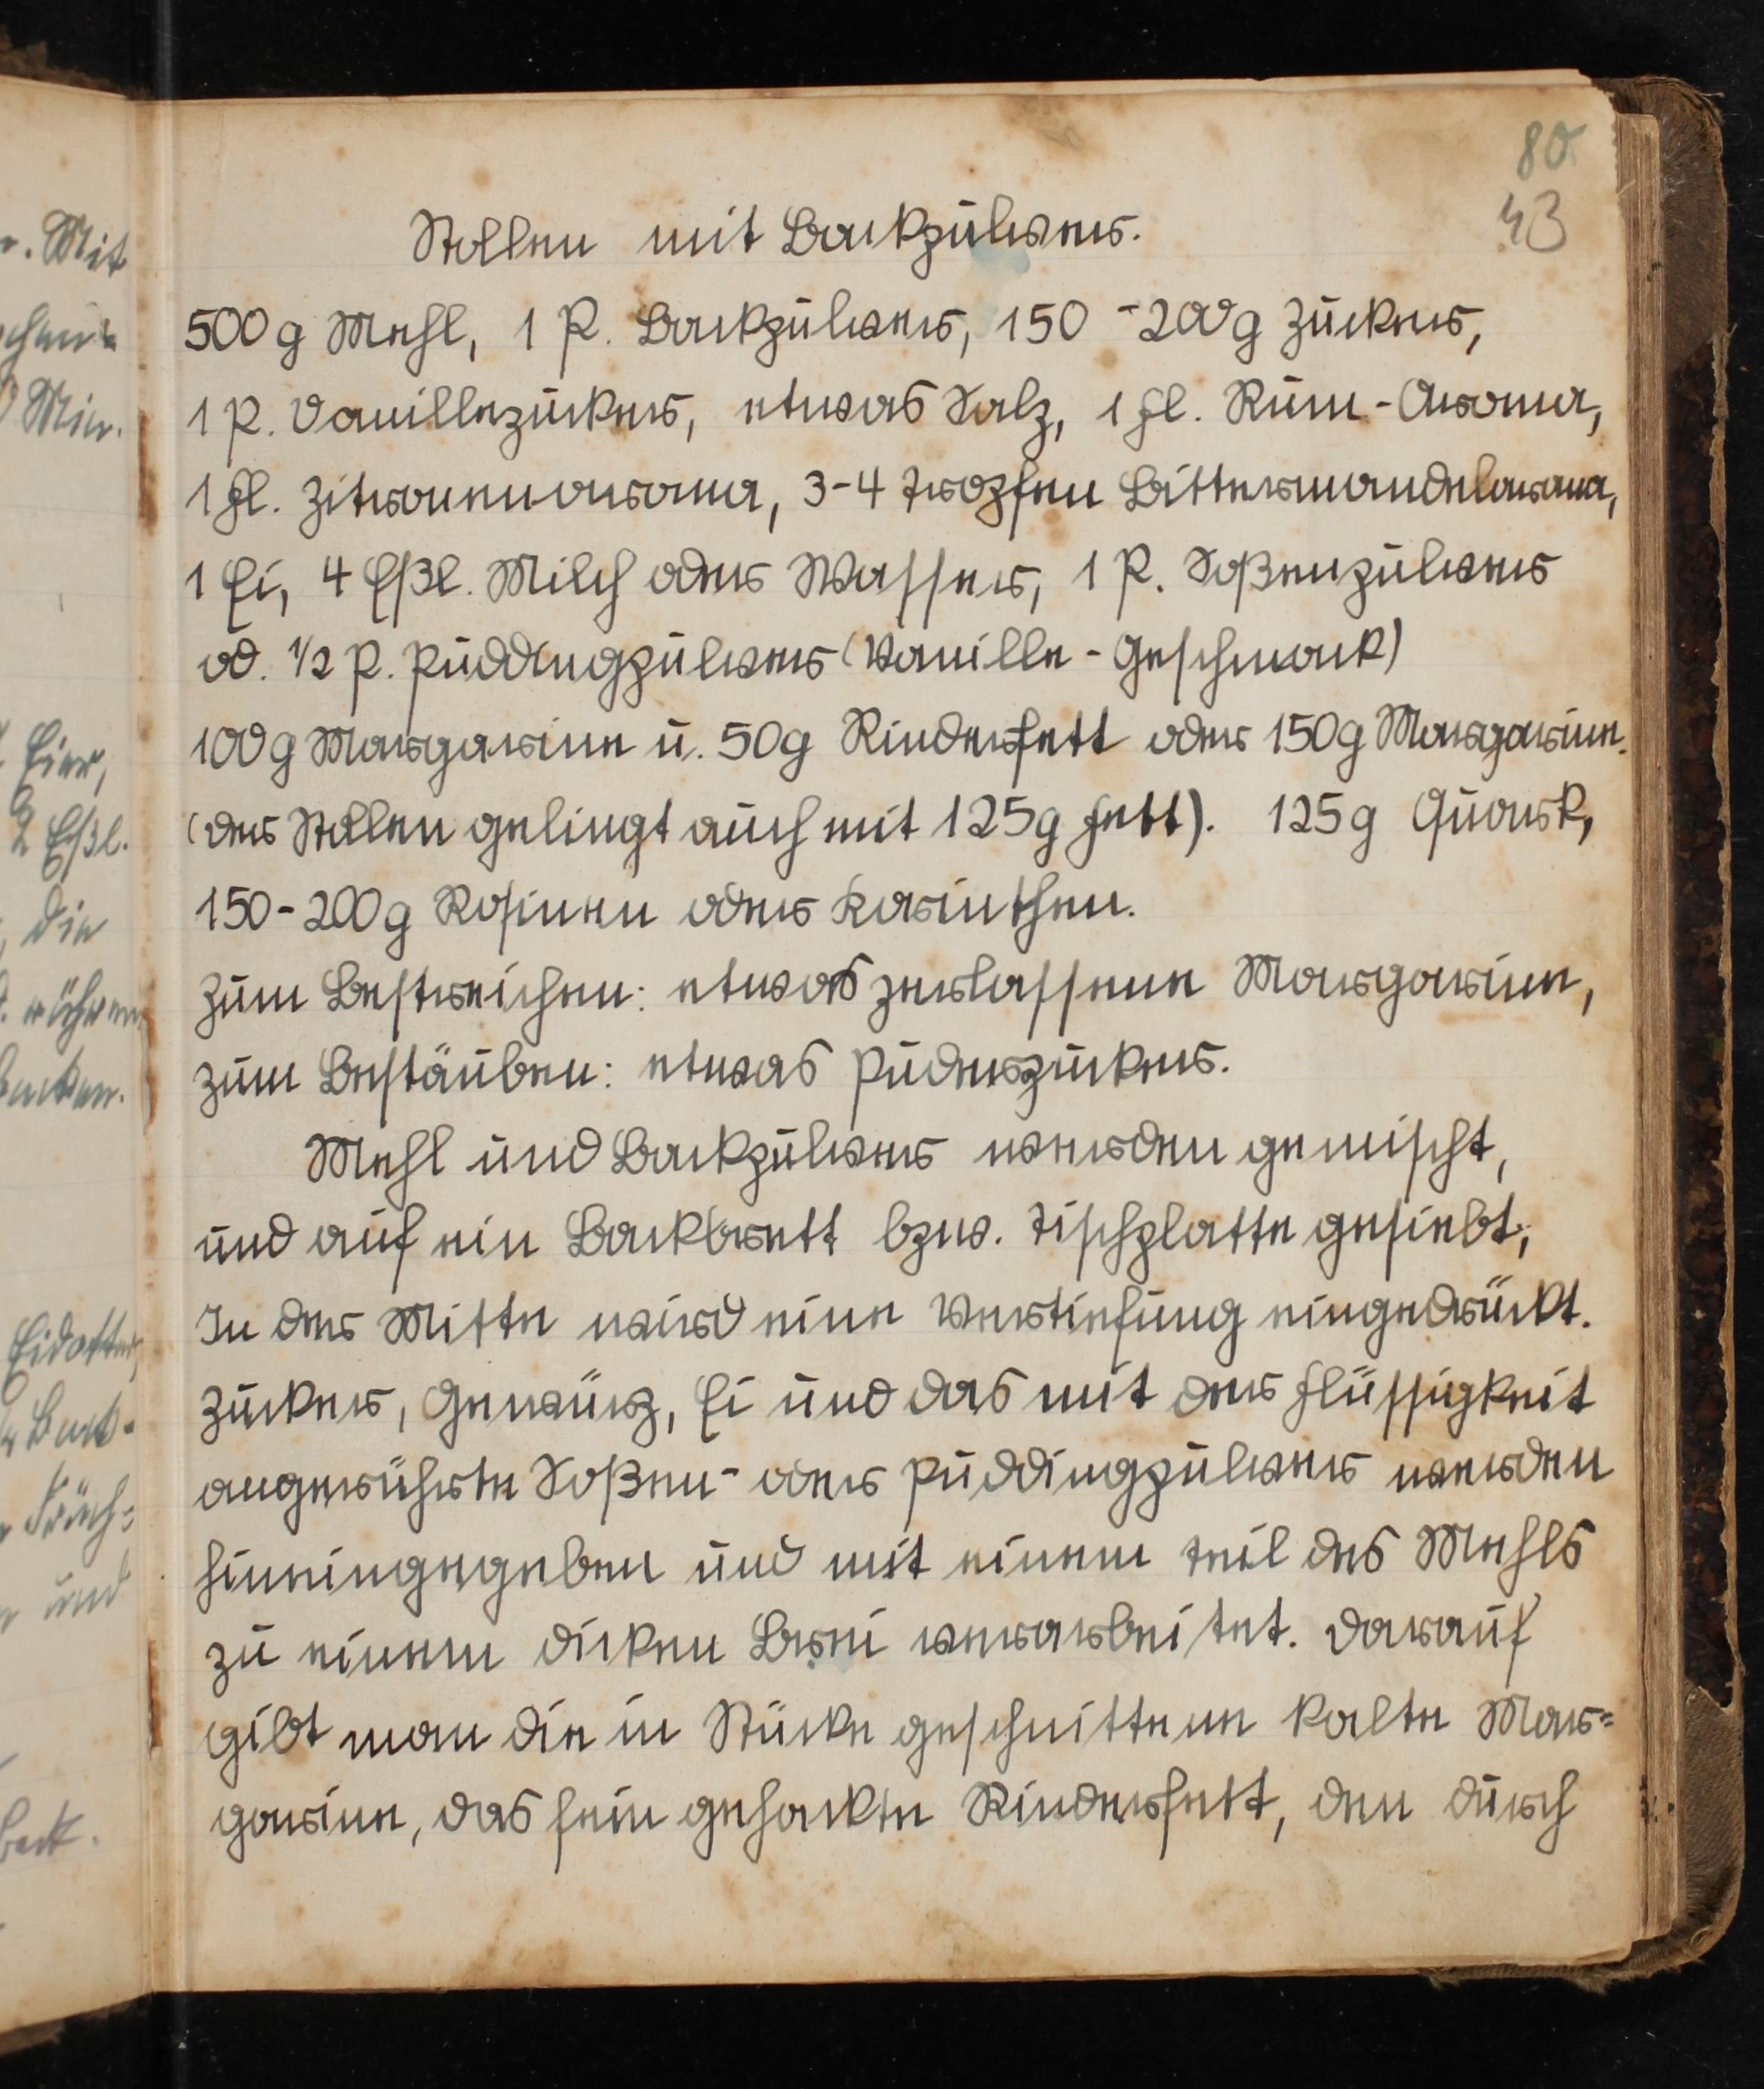 80.
43
Stollen mit Backpulver.
500 g Mehl, 1 P. Backpulver, 150 - 200 g Zucker,
1 P. Vanillezucker, etwas Salz, 1 Fl. Rum-Aroma,
1 Fl. Zitronenaroma, 3-4 Tropfen Bittermandelaroma,
1 Ei, 4 Eßl. Milch oder Wasser, 1 P. Soßenpulver
od. 1/2 P. Puddingpulver (Vanille-Geschmack)
100 g Margarine u. 50 g Rinderfett oder 150 g Margarine.
(der Stollen gelingt auch mit 125 g Fett). 125 g Quark,
150-200 g Rosinen oder Korinthen.
Zum Bestreichen: etwas zerlassene Margarine,
zum Bestäuben: etwas Puderzucker.
Mehl und Backpulver werden gemischt,
und auf ein Backbrett bzw. Tischplatte gesiebt;
In der Mitte wird eine Vertiefung eingedrückt.
Zucker, Gewürz, Ei und das mit der Flüssigkeit
angerührte Soßen- oder Puddingpulver werden
hineingegeben und mit einem Teil des Mehls
zu einem dicken Brei verarbeitet. Darauf
gibt man die in Stücke geschnittene kalte Mar=
garine, das fein gehackte Rinderfett, den durch
. Mit
Min.
Eier,
2 Eßl.
, die
rühren
backen.
Eidotter,
Back-
und